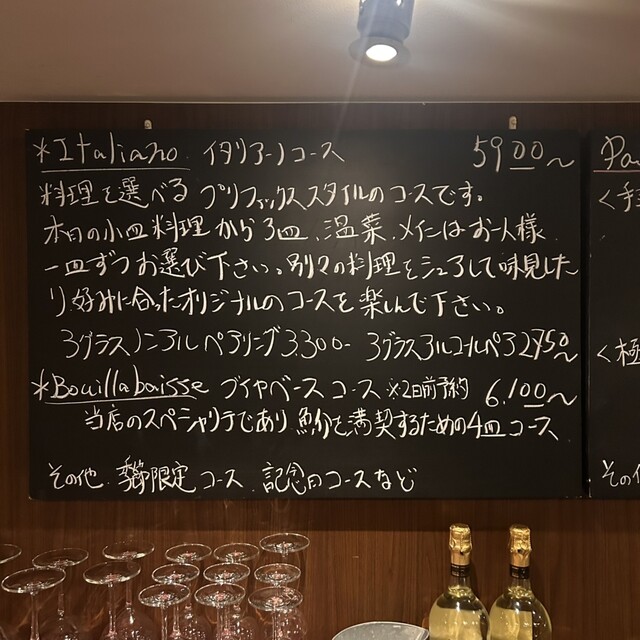 *Italiano イタリアーノコース 5900~
料理を選べる プリフィックススタイルのコースです。
本日の小皿料理から3皿、温菜、メインはお一人様
一皿ずつお選び下さい。別々の料理をシェアして味見した
り好みに合ったオリジナルのコースを楽しんで下さい。
3グラスノンアルペアリング3.300- 3グラスアルコールペア2950~
*Bouillabaisse ブイヤベースコース ※2日前予約 6.100~
当店のスペシャリテであり魚介を満喫するための4皿コース
その他、季節限定コース、記念日のコースなど
Pa
<手
<極
その他